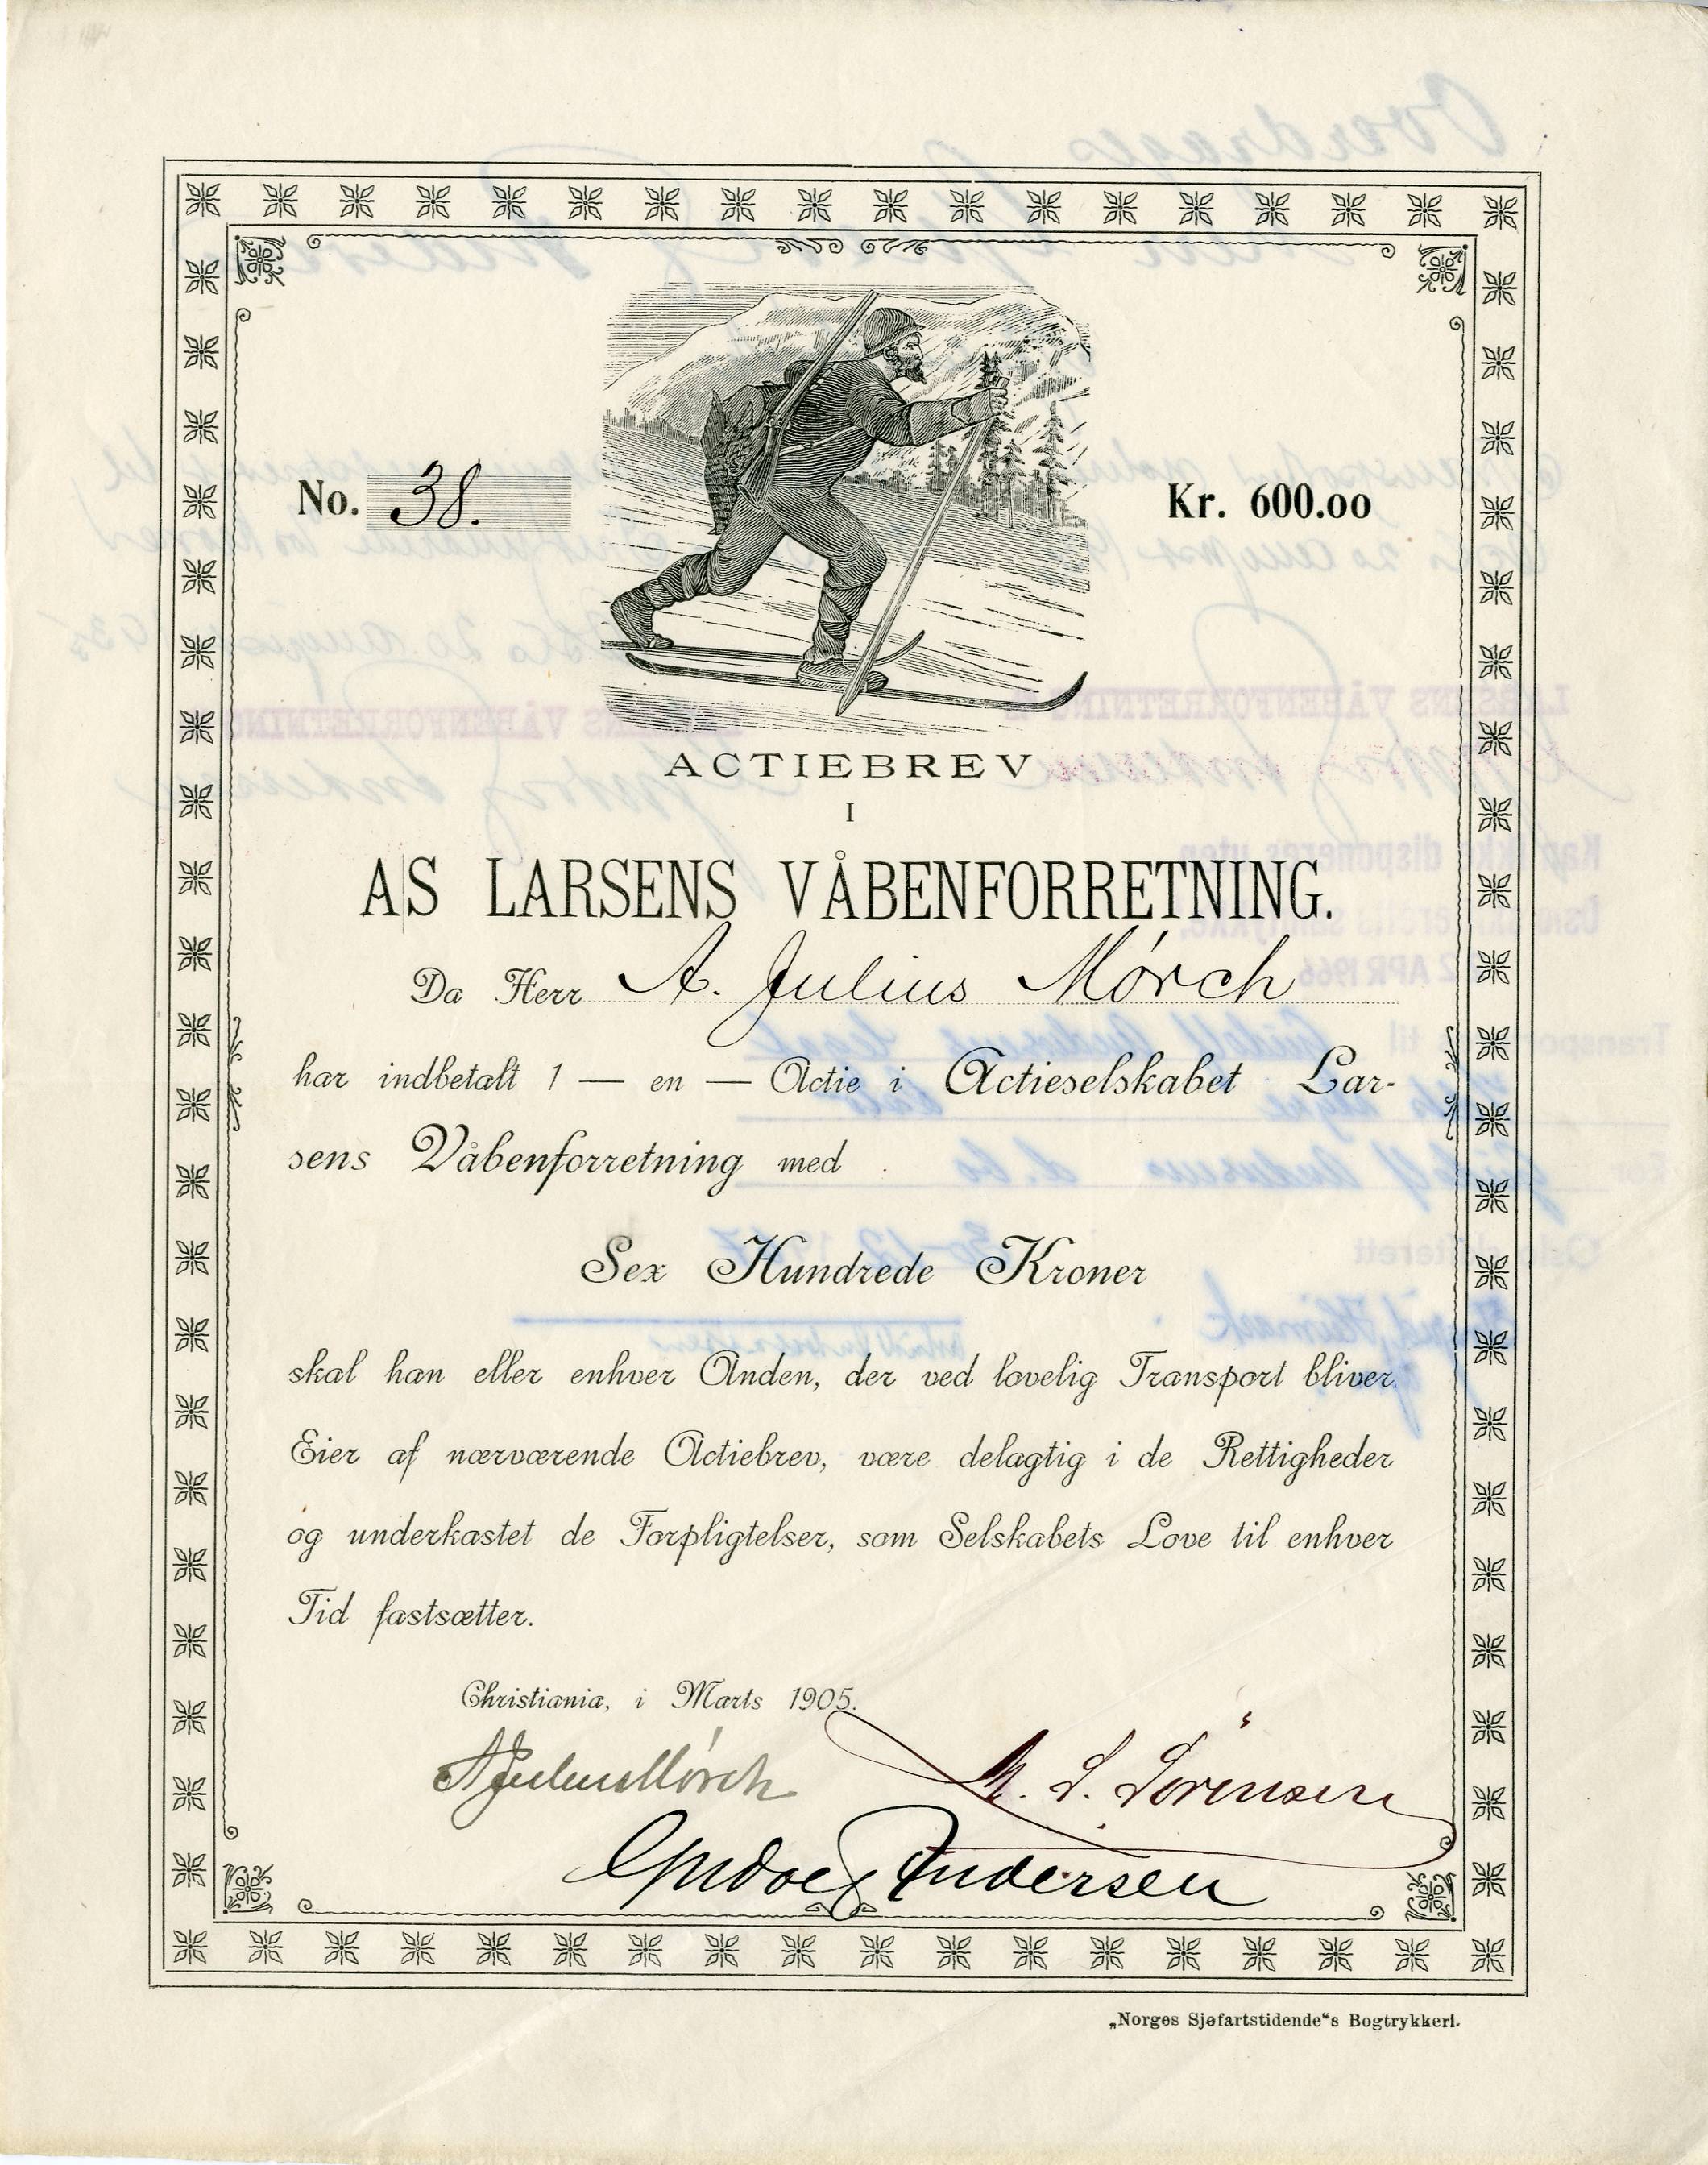 No. 38.
Kr. 600.00
ACTIEBREV
I
A|S LARSENS VÅBENFORRETNING.
Da Herr A. Julius Mørch
har indbetalt 1 — en — Actie i Actieselskabet Lar-
sens Våbenforretning med
Sex Hundrede Kroner
skal han eller enhver Anden, der ved lovelig Transport bliver
Eier af nærværende Actiebrev, være delagtig i de Rettigheder
og underkastet de Forpligtelser, som Selskabets Love til enhver
Tid fastsætter.
Christiania, i Marts 1905.
A Julius Mørch
M. L. Sörensen
Andersen
„Norges Sjøfartstidende“s Bogtrykkeri.